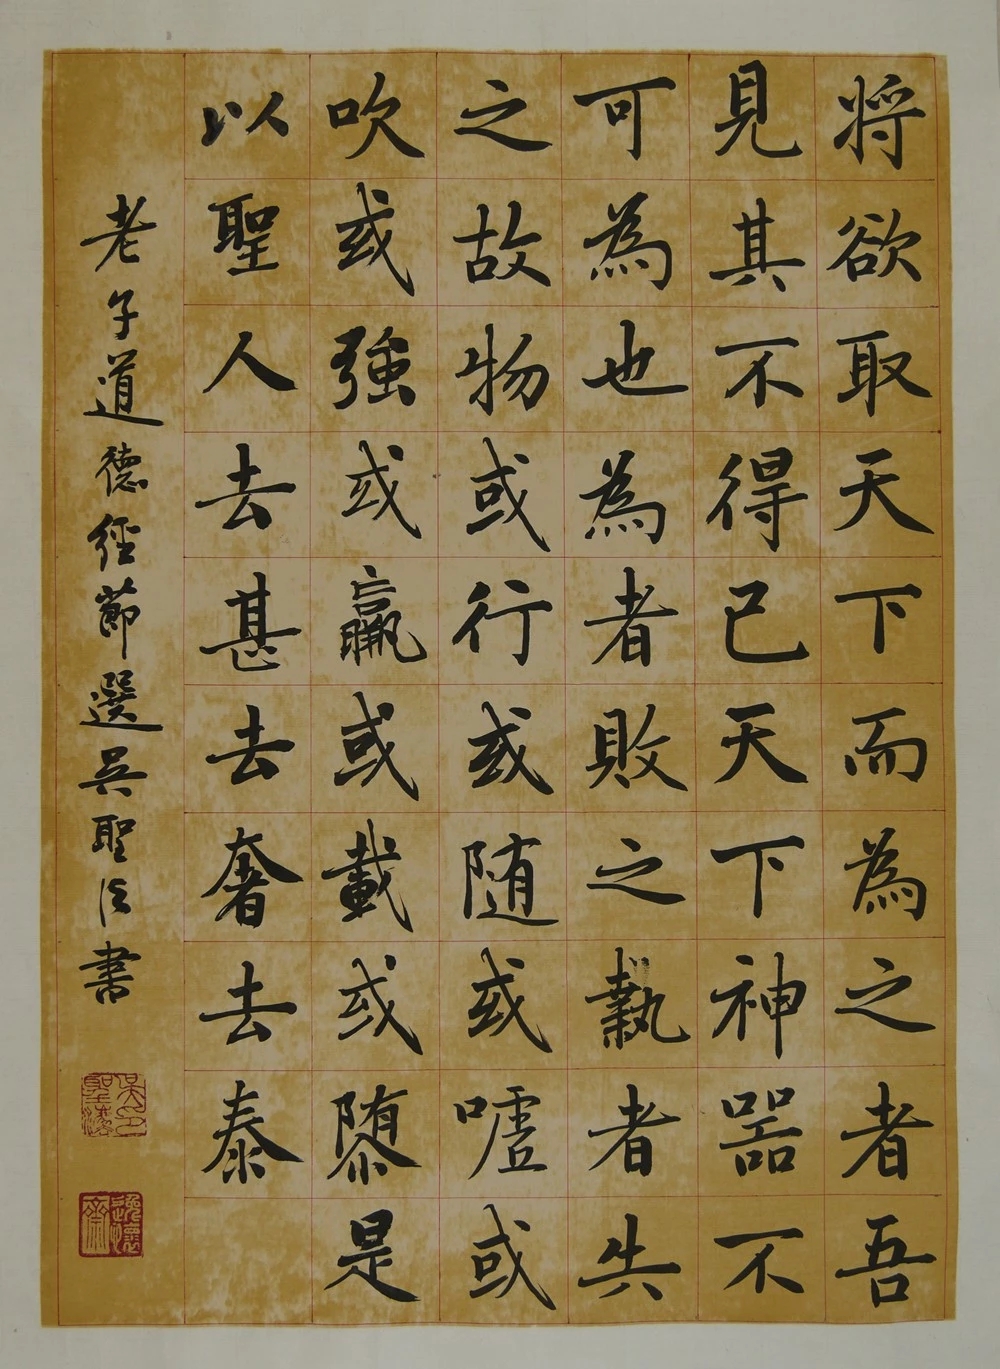 将欲取天下而為之者吾
見其不得已天下神器不
可為也為者敗之執者失
之故物或行或随或嘘或
吹或強或羸或載或隳是
以聖人去甚去奢去泰
老子道德經節選吳聖法書